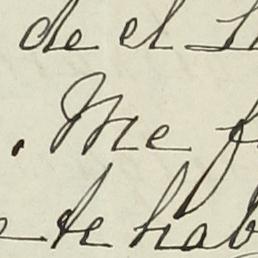 de el
. Me
te hab